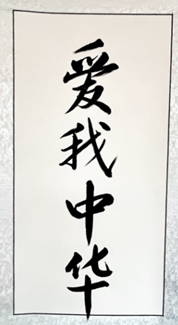 爱我中华